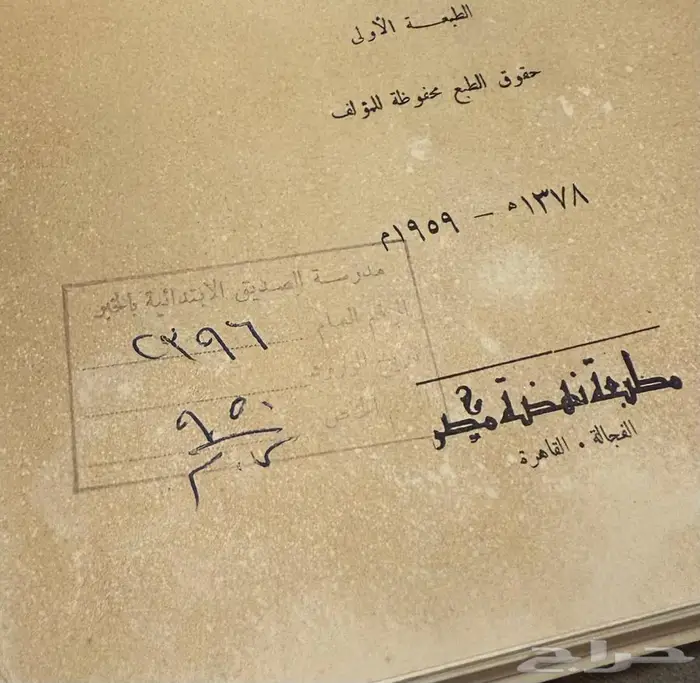 الطبعة الأولى
حقوق الطبع محفوظة للمؤلف
١٣٧٨ه – ١٩٥٩م
مدرسة الصديق الابتدائية بالخبر
الرقم العام
٢٣٩٦
٩٥٠
مطبعة نهضة مصر
الفجالة . القاهرة
حراج